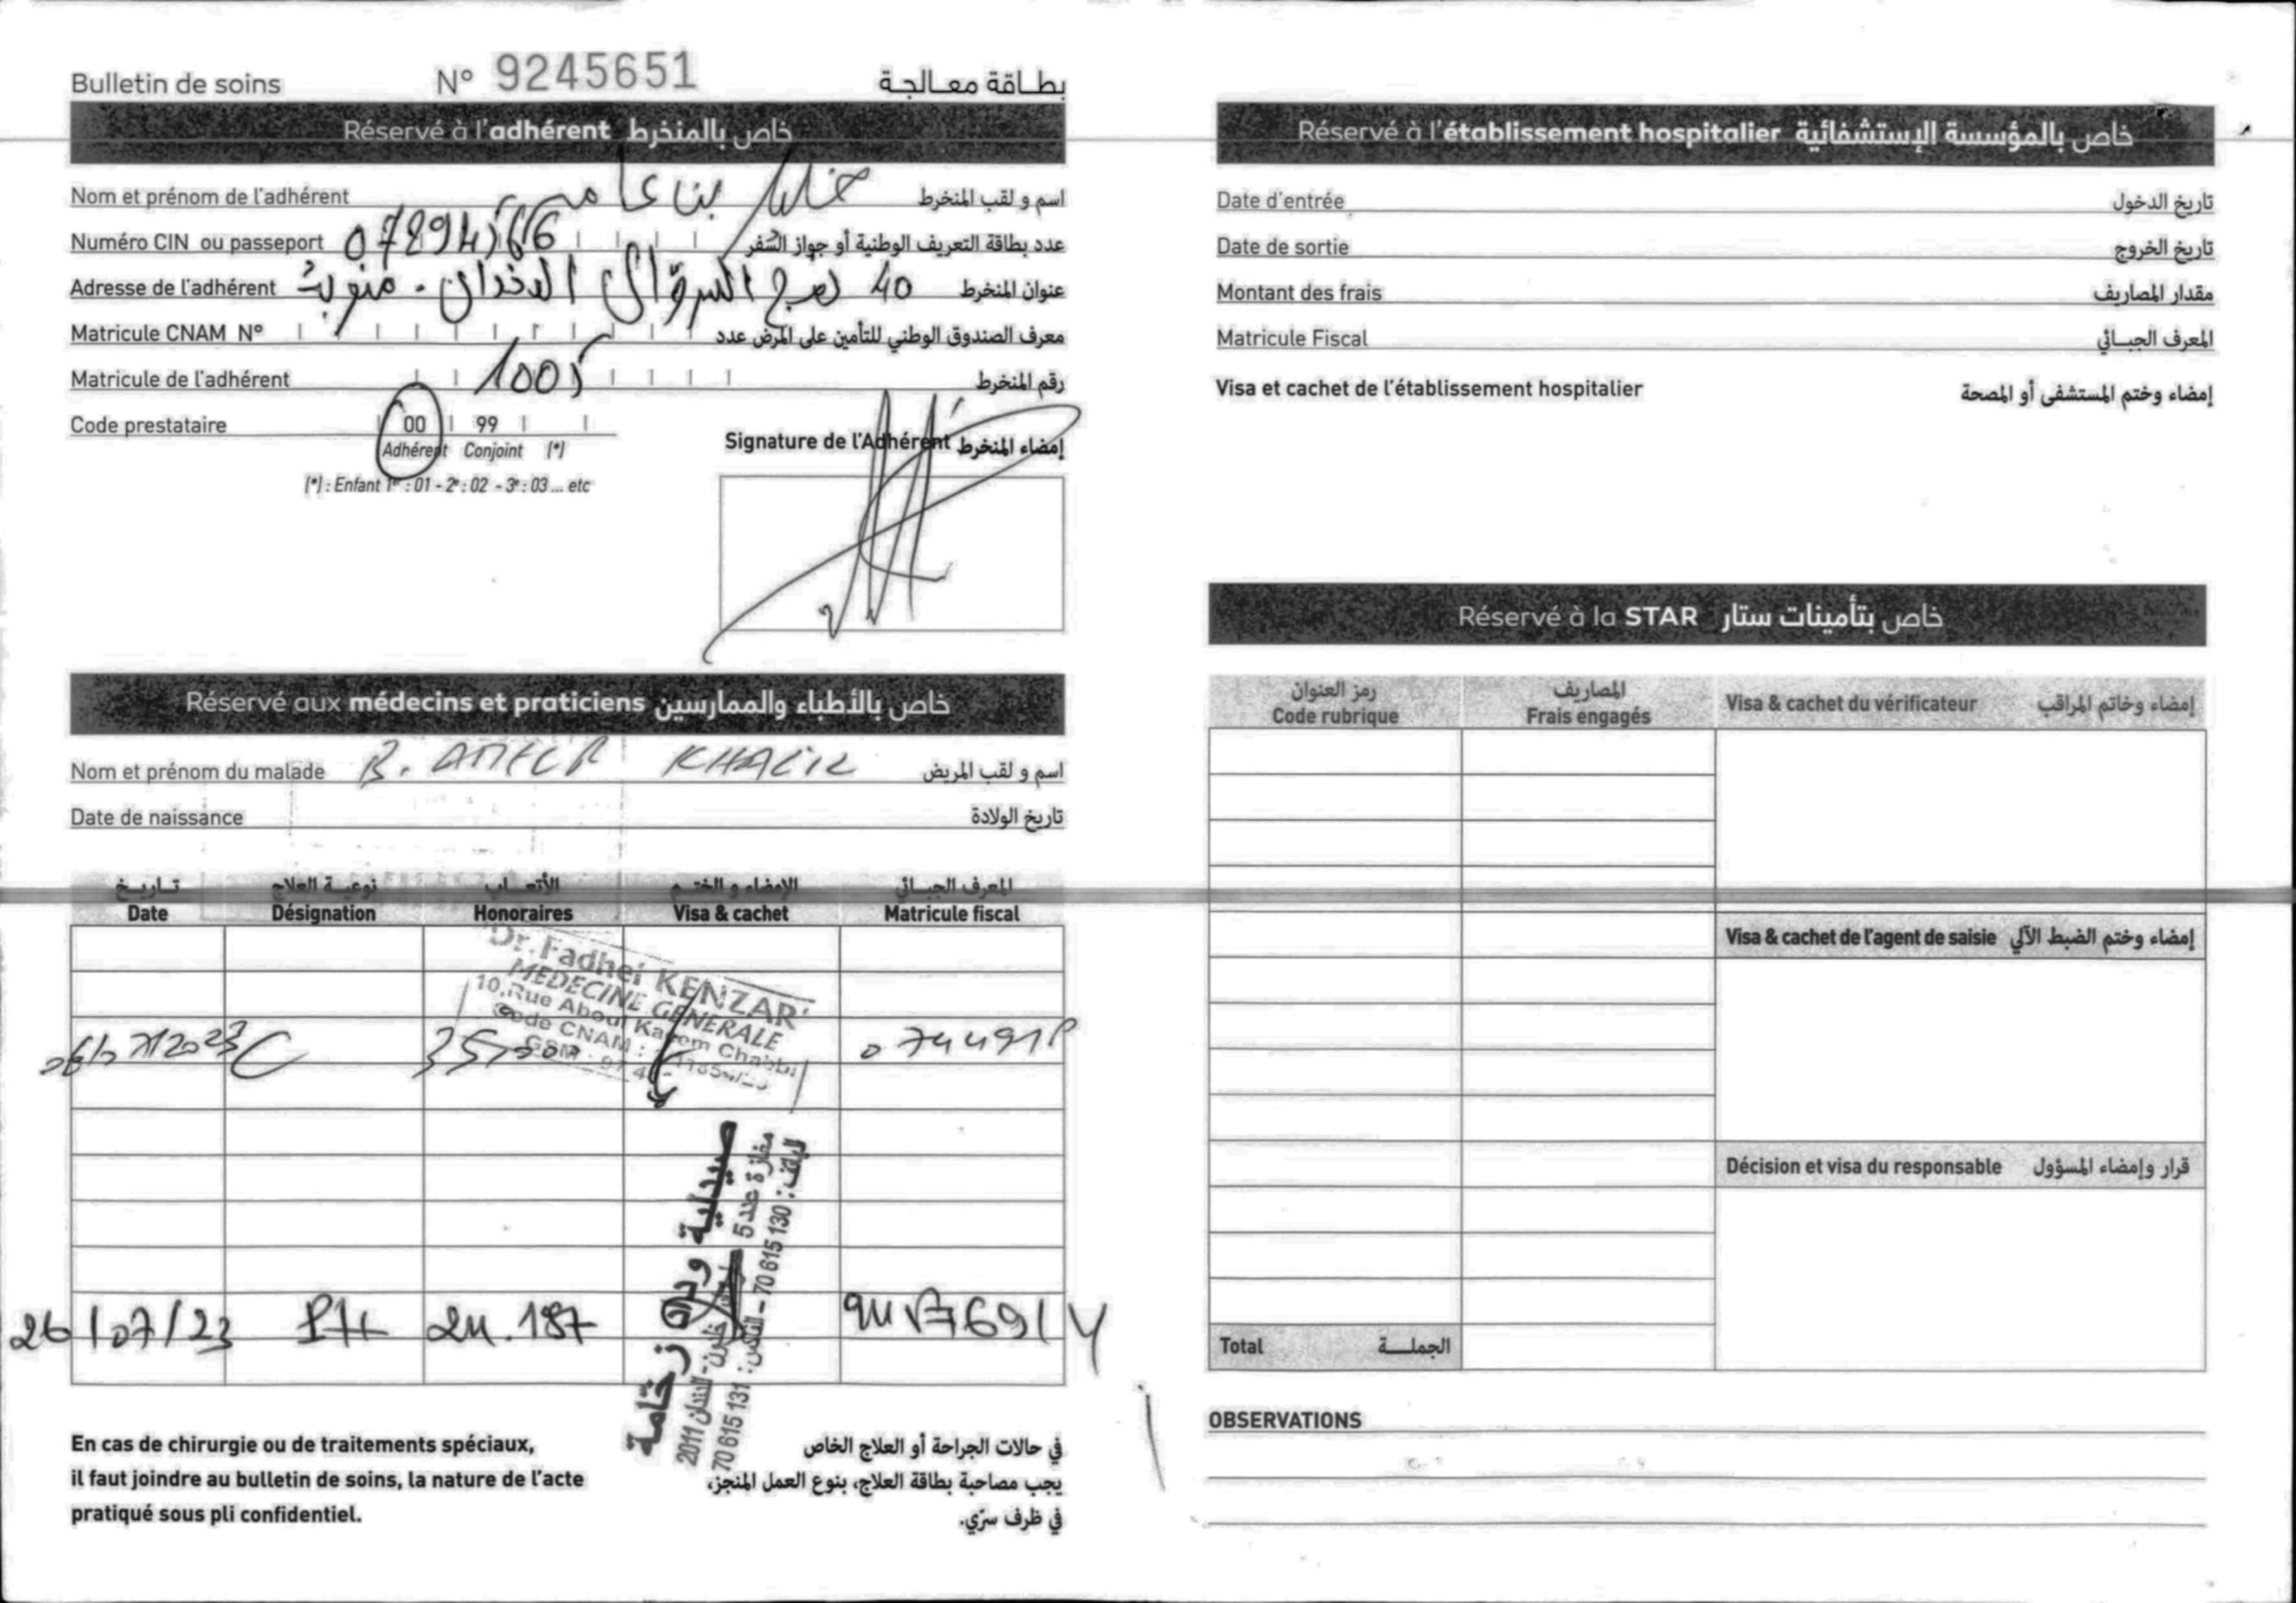 Bulletin de soins N° 9245651 بطاقة معالجة
Réservé à l'adhérent خاص بالمنخرط
Nom et prénom de l'adhérent خليل بن عامر اسم و لقب المنخرط
Numéro CIN ou passeport عدد بطاقة التعريف الوطنية أو جواز السفر
Adresse de l'adhérent 40 نهج منوبة عنوان المنخرط
Matricule CNAM N° معرف الصندوق الوطني للتأمين على المرض عدد
Matricule de l'adhérent 1005 رقم المنخرط
Code prestataire 00 99
Adhérent Conjoint (*)
(*) : Enfant 1er : 01 - 2e : 02 - 3e : 03 ... etc
Signature de l'Adhérent إمضاء المنخرط
Réservé aux médecins et praticiens خاص بالأطباء والممارسين
Nom et prénom du malade B. AMEUR KHALIL اسم و لقب المريض
Date de naissance تاريخ الولادة
تاريخ نوعية العلاج الأتعاب الإمضاء و الختم المعرف الجبائي
Date Désignation Honoraires Visa & cachet Matricule fiscal
Dr. Fadhel KENZARI
MEDECINE GENERALE
10, Rue Aboul Kacem Chabbi
Code CNAM :
GSM : 97
26/07/2023 C 35,000 074491P
صيدلية زخامة
مغازة عدد 5
2011
الهاتف : 70 615 130 – الفاكس : 70 615 131
26/07/23 PH 24.187
En cas de chirurgie ou de traitements spéciaux,
il faut joindre au bulletin de soins, la nature de l'acte
pratiqué sous pli confidentiel.
في حالات الجراحة أو العلاج الخاص
يجب مصاحبة بطاقة العلاج، بنوع العمل المنجز،
في ظرف سرّي.
Réservé à l'établissement hospitalier خاص بالمؤسسة الإستشفائية
Date d'entrée تاريخ الدخول
Date de sortie تاريخ الخروج
Montant des frais مقدار المصاريف
Matricule Fiscal المعرف الجبائي
Visa et cachet de l'établissement hospitalier إمضاء وختم المستشفى أو المصحة
Réservé à la STAR خاص بتأمينات ستار
رمز العنوان المصاريف
Code rubrique Frais engagés Visa & cachet du vérificateur إمضاء وخاتم المراقب
Visa & cachet de l'agent de saisie إمضاء وختم الضبط الآلي
Décision et visa du responsable قرار وإمضاء المسؤول
Total الجملة
OBSERVATIONS